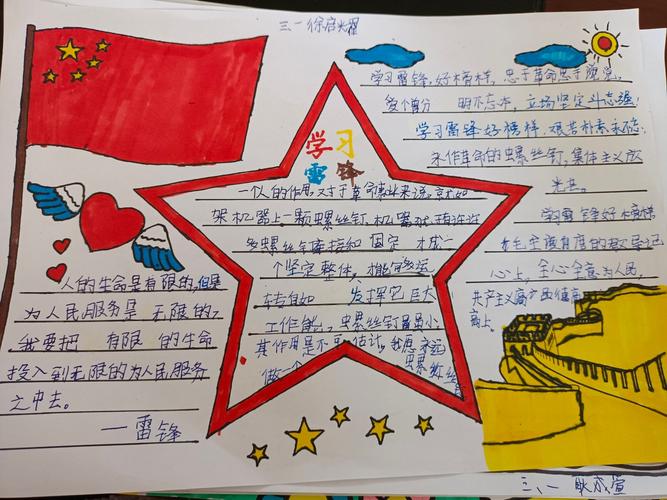 三、一徐启光耀
学习
雷锋
一个人的作用,对于革命事业来说,就如
架机器上一颗螺丝钉,机器
螺丝钉
个坚定整体,
转自如 发挥它巨大
工作能,螺丝钉虽小
其作用是不可估计,我愿永远
做一个 螺丝
人的生命是有限的,但是
为人民服务是 无限的,
我要把 有限 的生命
投入到无限的为人民服务
之中去。
—雷锋
学习雷锋,好榜样,忠于革命忠于党,
明不忘本,立场坚定斗志强
学习雷锋好榜样,艰苦朴素永不忘
永作革命的螺丝钉,集体主义放
光芒。
学习雷锋好榜样
毛主席的教导记
心上,全心全意为人民,
共产主义
高上。
三、一 耿